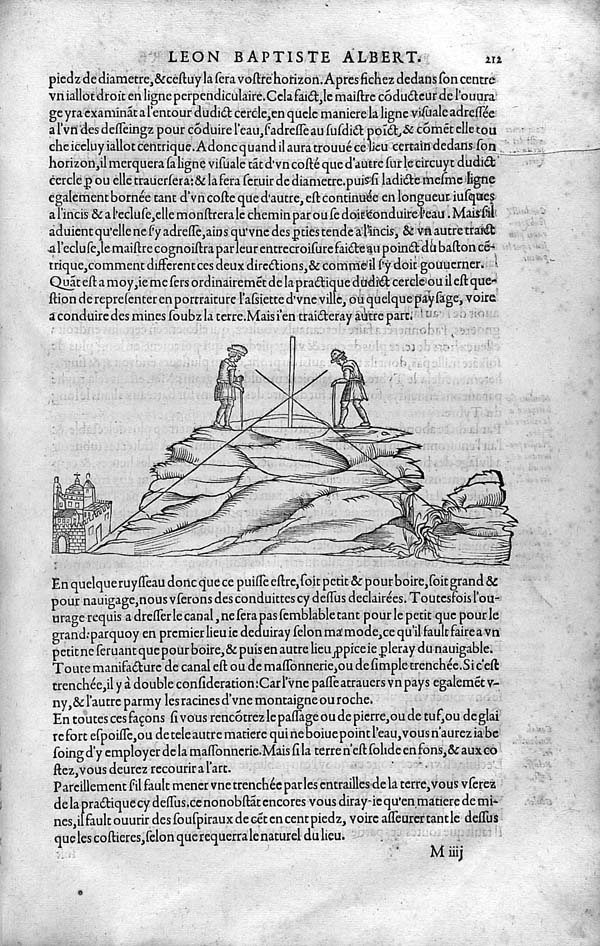 LEON BAPTISTE ALBERT. 212
piedz de diametre,&cestuy la sera vostre horizon. Apres fichez dedans son centre
vn iallot droit en ligne perpendiculaire. Cela faict,le maistre cõducteur de l'ouura
ge yra examinãt a l'entour dudict cercle,en quele maniere la ligne visuale adressée
a l'vn des desseingz pour cõduire l'eau,s'adresse au susdict poĩct,& cõmẽt elle tou
che iceluy iallot centrique. Adonc quand il aura trouué ce lieu certain dedans son
horizon,il merquera sa ligne visuale tãt d'vn costé que d'autre sur le circuyt dudict
cercle p ou elle trauersera:& la fera seruir de diametre.puis si ladicte mesme ligne
egalement bornée tant d'vn coste que d'autre, est continuée en longueur iusques
a l'incis & a l'ecluse,elle monstrera le chemin par ou se doit conduire l'eau . Mais s'il
aduient qu'elle ne s'y adresse,ains qu'vne des pties tende a l'incis, & vn autre traict
a l'ecluse,le maistre cognoistra par leur entrecroisure faicte au poinct du baston cẽ-
trique,comment different ces deux directions,& comme il s'y doit gouuerner.
Quãt est a moy,ie me sers ordinairemẽt de la practique dudict cercle ou il est que-
stion de representer en portraiture l'assiette d'vne ville, ou quelque paysage, voire
a conduire des mines soubz la terre.Mais i'en traicteray autre part.
En quelque ruysseau donc que ce puisse estre,soit petit & pour boire,soit grand &
pour nauigage,nous vserons des conduittes cy dessus declairées. Toutesfois l'ou-
urage requis a dresser le canal ,ne sera pas semblable tant pour le petit que pour le
grand:parquoy en premier lieu ie deduiray selon ma mode,ce qu'il fault faire a vn
petit ne seruant que pour boire,& puis en autre lieu ꝓpice ie ꝑleray du nauigable.
Toute manifacture de canal est ou de massonnerie,ou de simple trenchée.Si c'est
trenchée,il y à double consideration:Car l'vne passe atrauers vn pays egalemẽt v-
ny,& l'autre parmy les racines d'vne montaigne ou roche.
En toutes ces façons si vous rencõtrez le passage ou de pierre,ou de tuf,ou de glai
re fort espoisse,ou de tele autre matiere qui ne boiue point l'eau,vous n'aurez ia be
soing d'y employer de la massonnerie.Mais si la terre n'est solide en fons,& aux co
stez,vous deurez recourir a l'art.
Pareillement s'il fault mener vne trenchée par les entrailles de la terre,vous vserez
de la practique cy dessus.ce nonobstãt encores vous diray-ie qu'en matiere de mi-
nes,il fault ouurir des souspiraux de cẽt en cent piedz, voire asseurer tant le dessus
que les costieres,selon que requerra le naturel du lieu.
M iiij